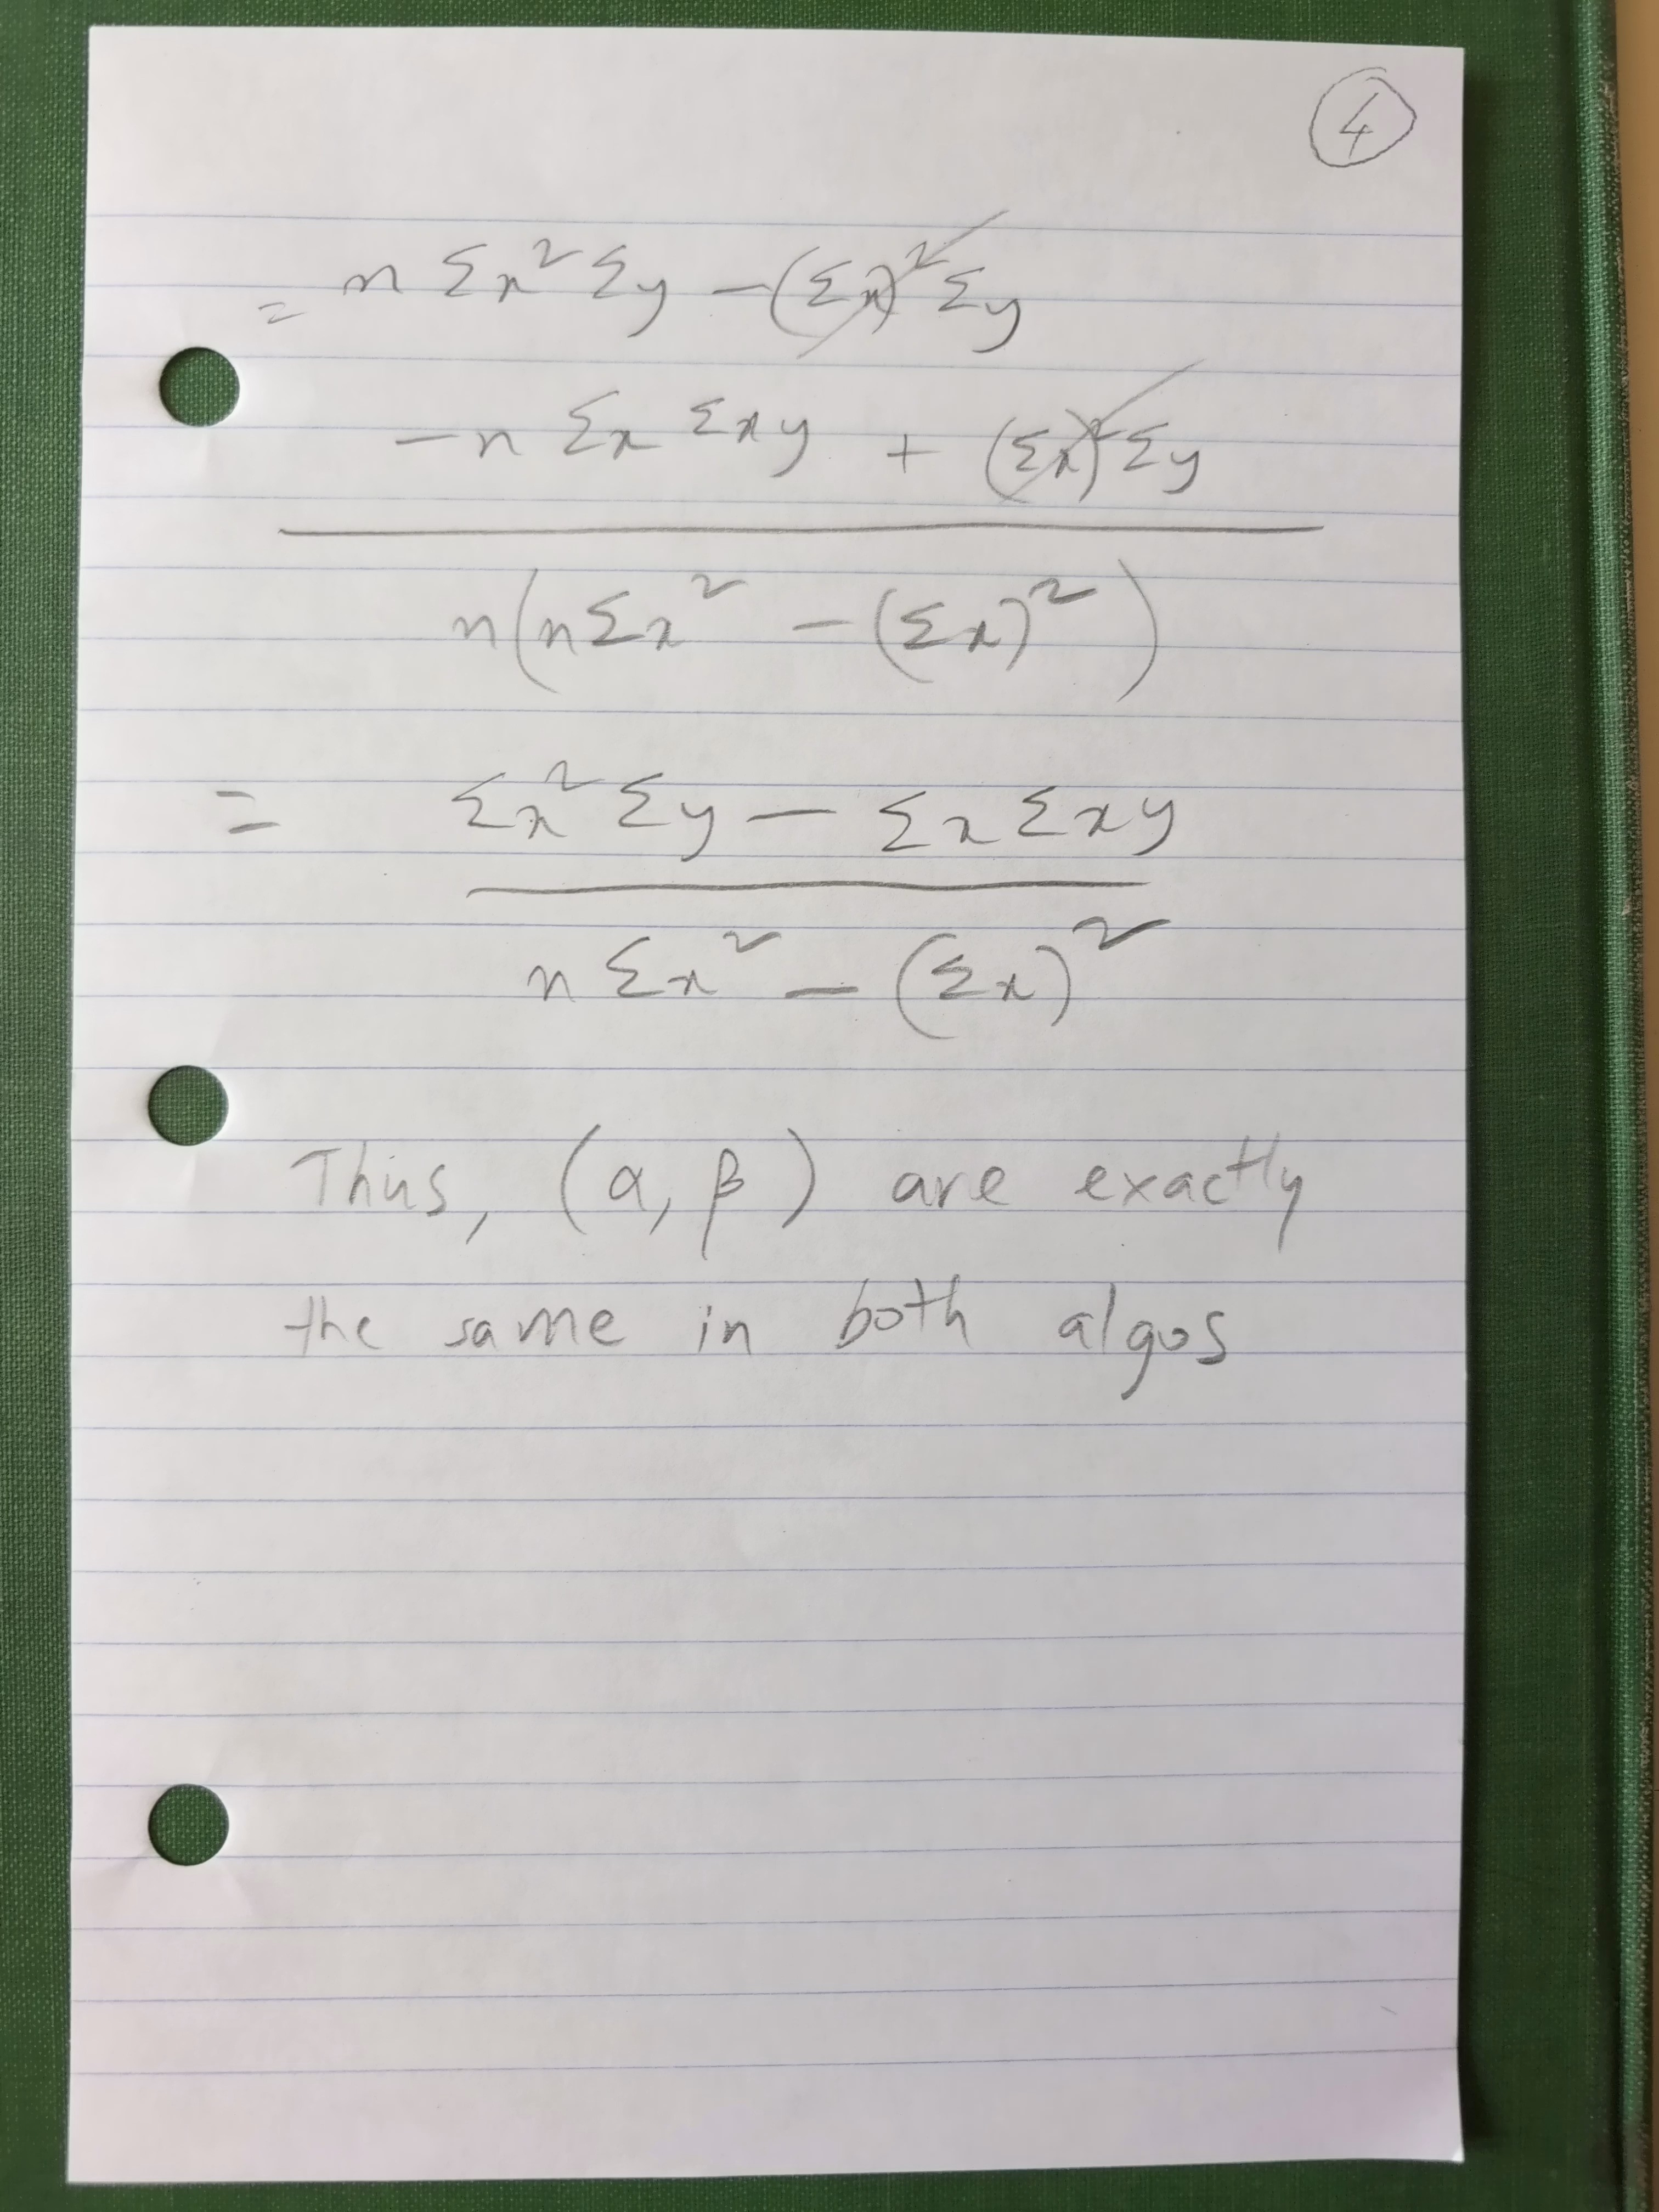 4
= n Σx² Σy - (Σx)² Σy
- n Σx Σxy + (Σx)² Σy
n(nΣx² - (Σx)²)
= Σx² Σy - Σx Σxy
n Σx² - (Σx)²
Thus, (α, β) are exactly
the same in both algos